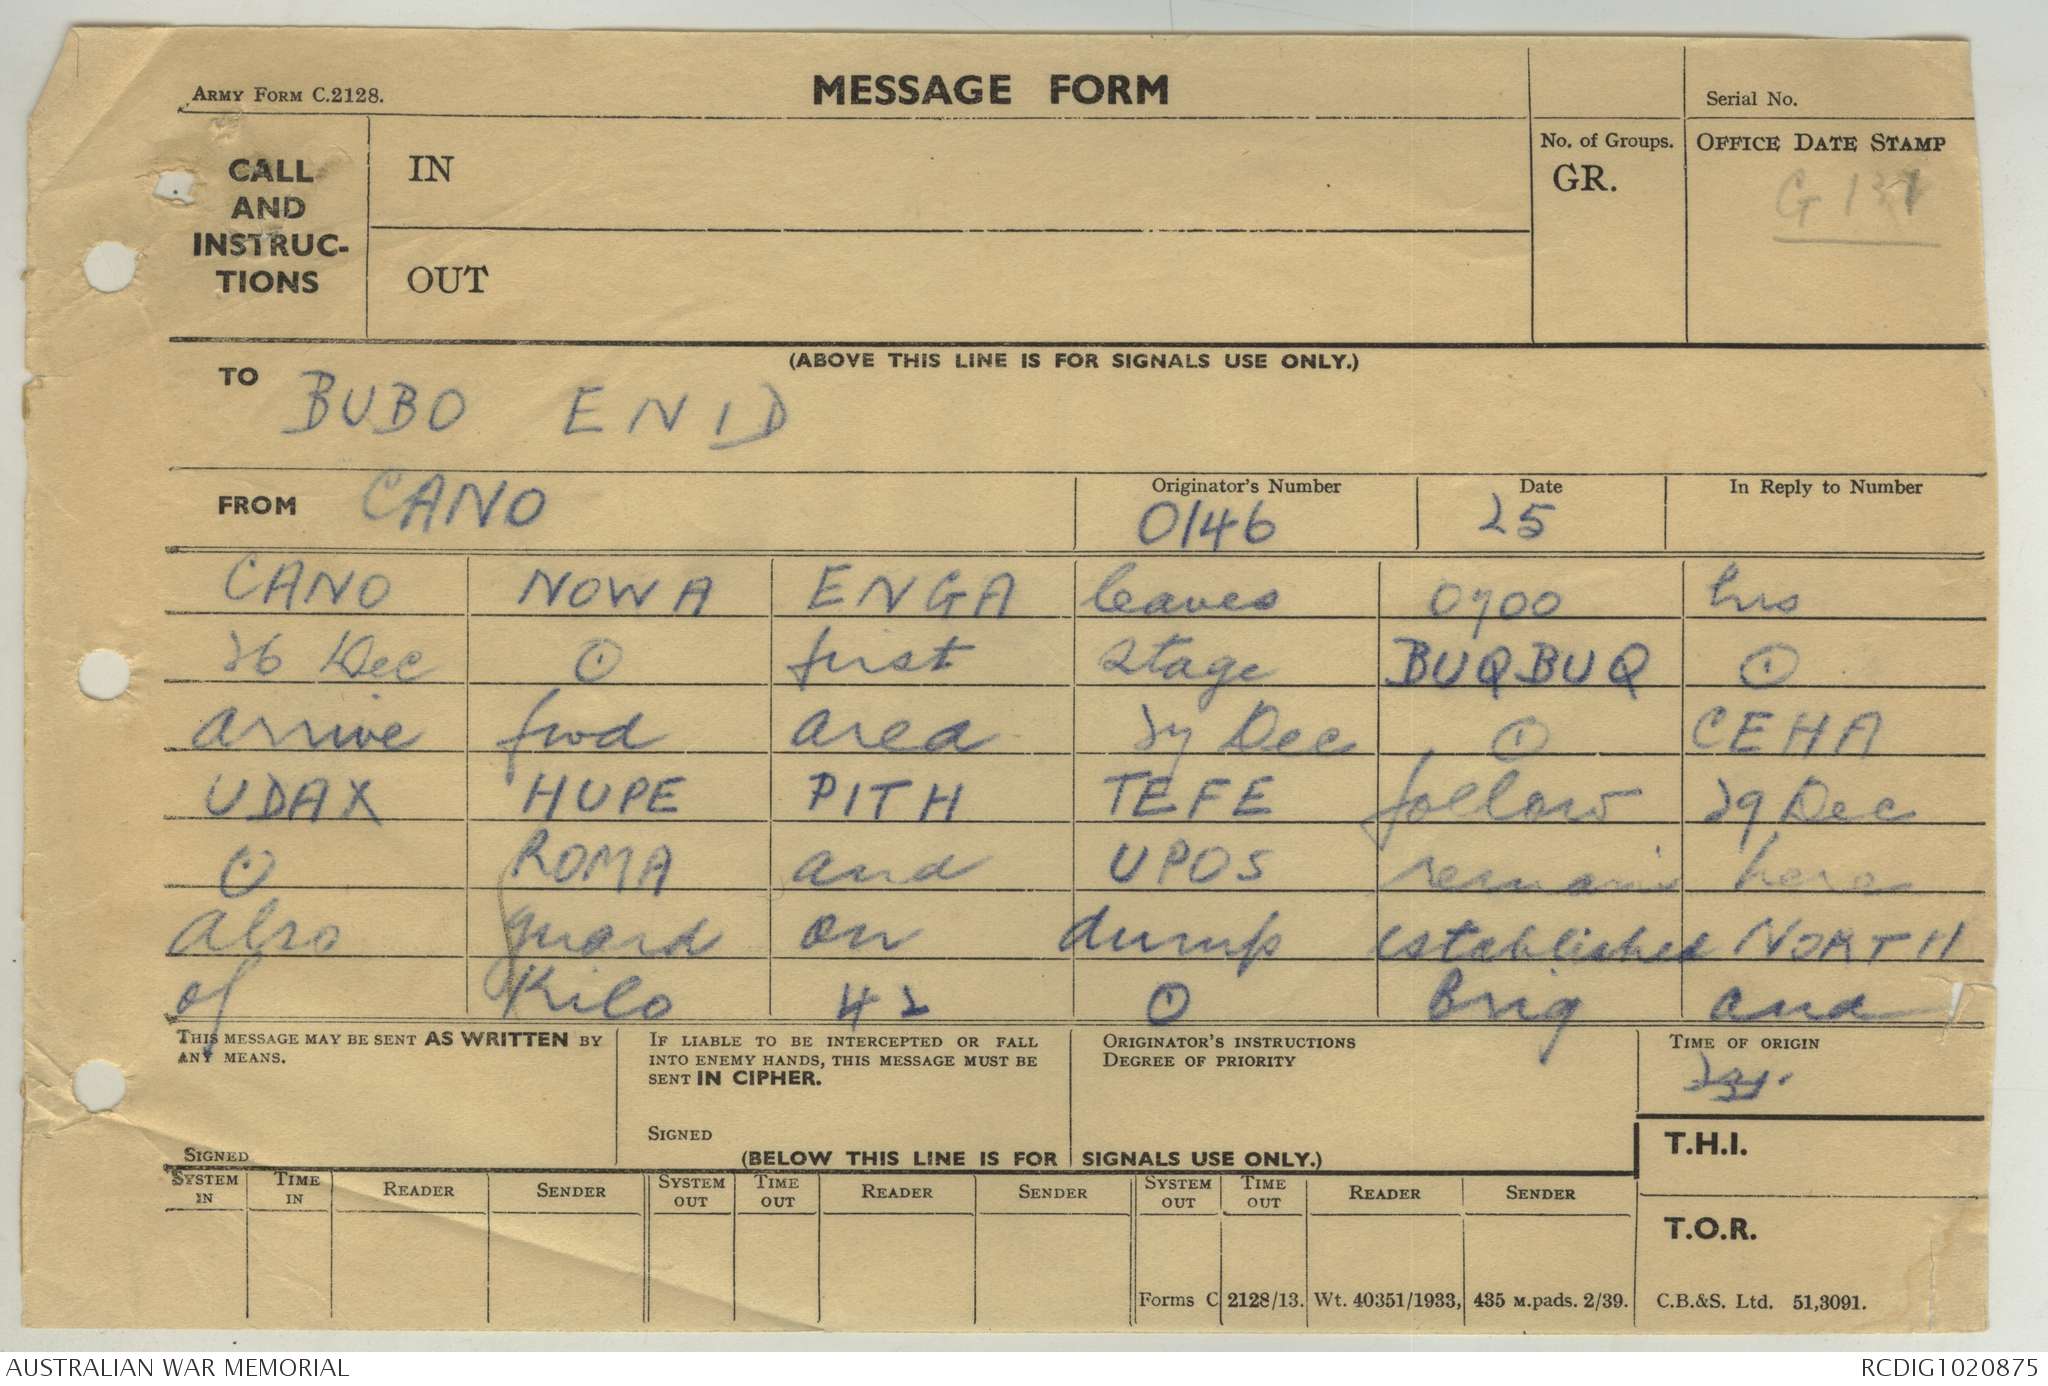 ARMY FORM C.2128.
MESSAGE FORM
Serial No.
CALL AND INSTRUC-TIONS
IN
OUT
No. of Groups.
GR.
OFFICE DATE STAMP
(ABOVE THIS LINE IS FOR SIGNALS USE ONLY.)
TO BUBO ENID
FROM CANO
Originator's Number 0146
Date 25
In Reply to Number
CANO NOWA ENGA leaves 0700 hrs
26 Dec ⊙ first stage BUQBUQ ⊙
arrive fwd area 27 Dec ⊙ CEHA
UDAX HUPE PITH TEFE follow 29 Dec
⊙ ROMA and UPOS remain here
also guard on dump established NORTH
of Kilo 42 ⊙ Brig and
THIS MESSAGE MAY BE SENT AS WRITTEN BY
ANY MEANS.
SIGNED
IF LIABLE TO BE INTERCEPTED OR FALL
INTO ENEMY HANDS, THIS MESSAGE MUST BE
SENT IN CIPHER.
SIGNED
ORIGINATOR'S INSTRUCTIONS
DEGREE OF PRIORITY
TIME OF ORIGIN
(BELOW THIS LINE IS FOR SIGNALS USE ONLY.)
T.H.I.
T.O.R.
SYSTEM IN TIME IN READER SENDER SYSTEM OUT TIME OUT READER SENDER SYSTEM OUT TIME OUT READER SENDER
Forms C 2128/13. Wt. 40351/1933, 435 M.pads. 2/39. C.B.&S. Ltd. 51,3091.
AUSTRALIAN WAR MEMORIAL
RCDIG1020875